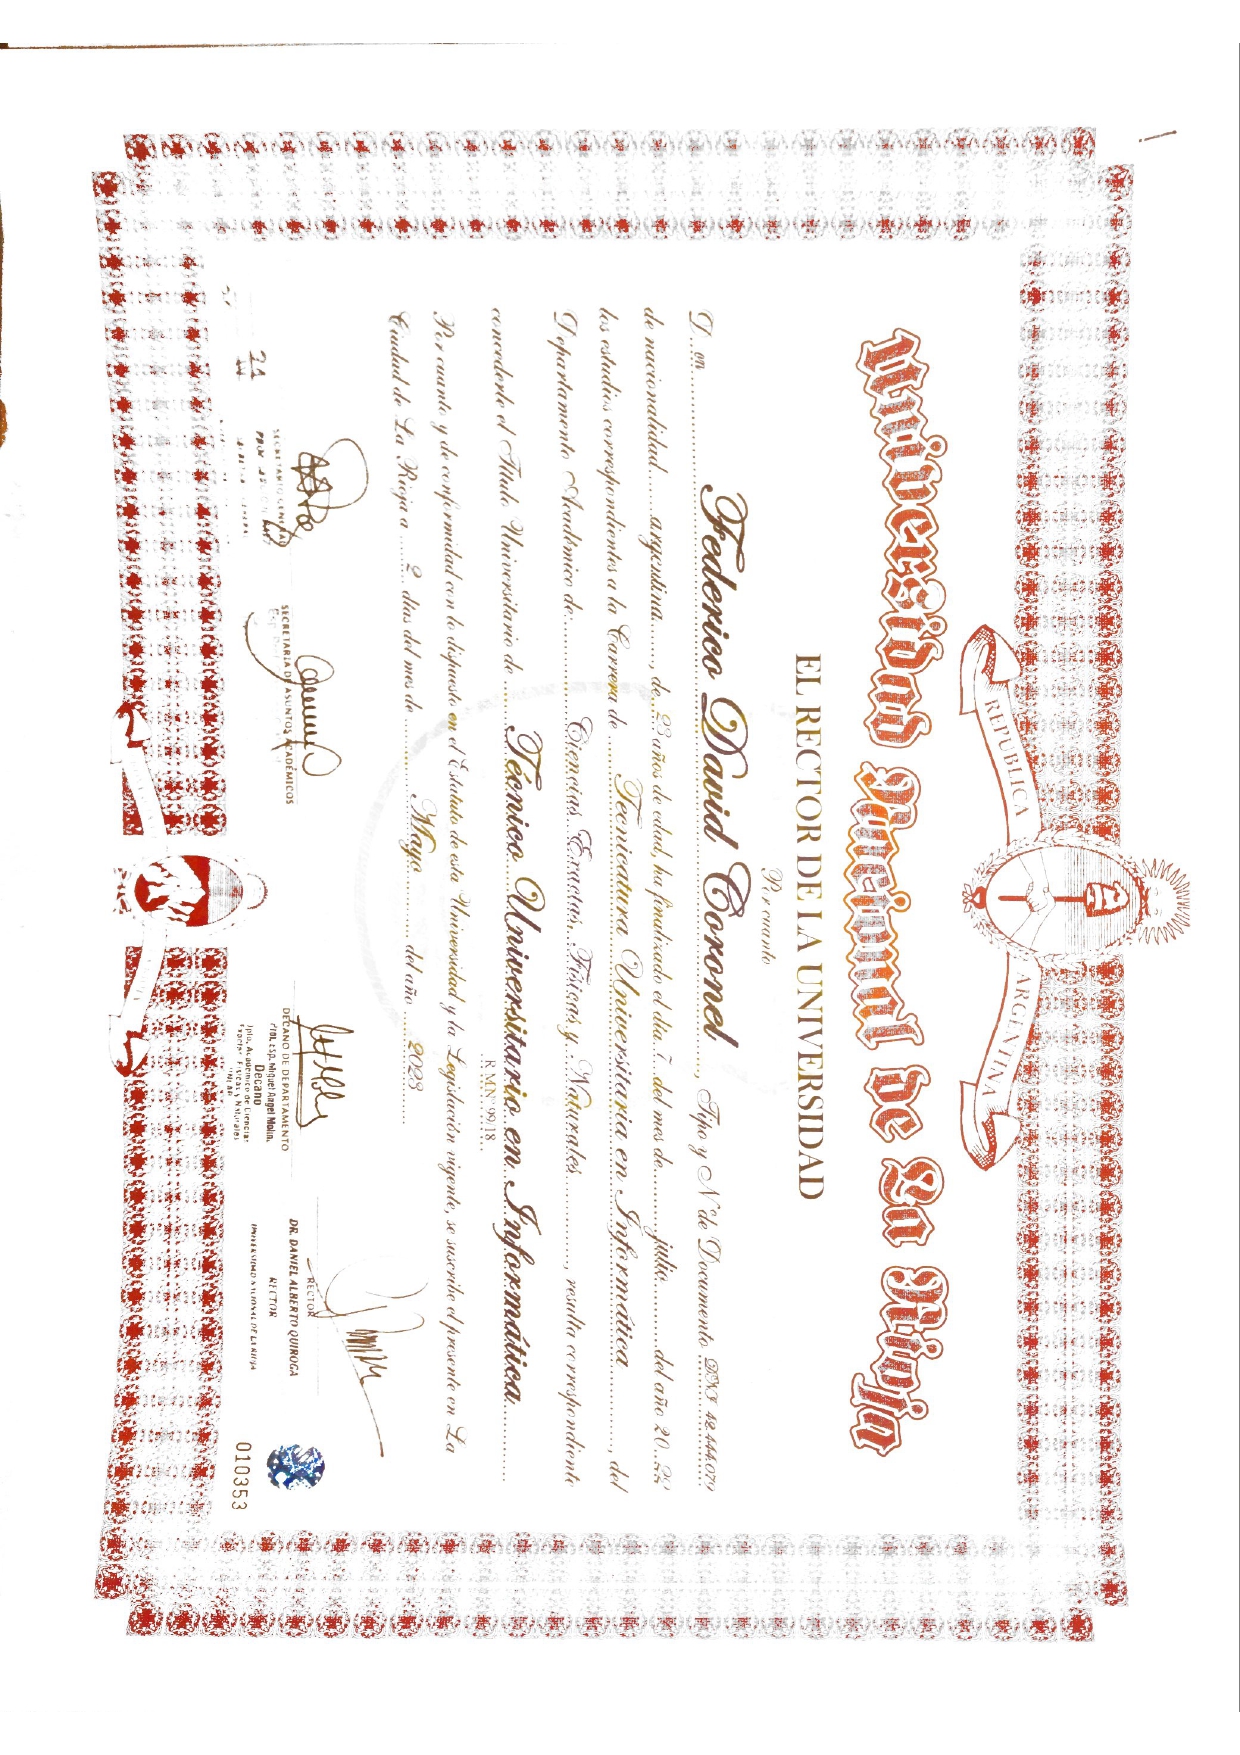 REPUBLICA ARGENTINA
Universidad Nacional de La Rioja
EL RECTOR DE LA UNIVERSIDAD
Por cuanto
D....on.... Federico David Coronel ...., Tipo y Nº de Documento DNI
de nacionalidad.......argentina......., de 23 años de edad, ha finalizado el día..7...del mes de.........julio.........del año 20.22
los estudios correspondientes a la Carrera de ........Tecnicatura Universitaria en Informática............, del
Departamento Académico de.............Ciencias Exactas, Físicas y Naturales............, resulta correspondiente
concederle el Título Universitario de .......Técnico Universitario en Informática............
R.M.Nº 99/18
Por cuanto y de conformidad con lo dispuesto en el Estatuto de esta Universidad y la Legislación vigente, se suscribe el presente en La
Ciudad de La Rioja a .......2... días del mes de.........Mayo......... del año .......2023...........
SECRETARIO GENERAL
SECRETARIA DE ASUNTOS ACADÉMICOS
DECANO DE DEPARTAMENTO
Prof. Esp. Miguel Angel Molin.
Decano
Dpto. Académico de Ciencias
Exactas, Físicas y Naturales
UNLAR
RECTOR
DR. DANIEL ALBERTO QUIROGA
RECTOR
UNIVERSIDAD NACIONAL DE LA RIOJA
010353